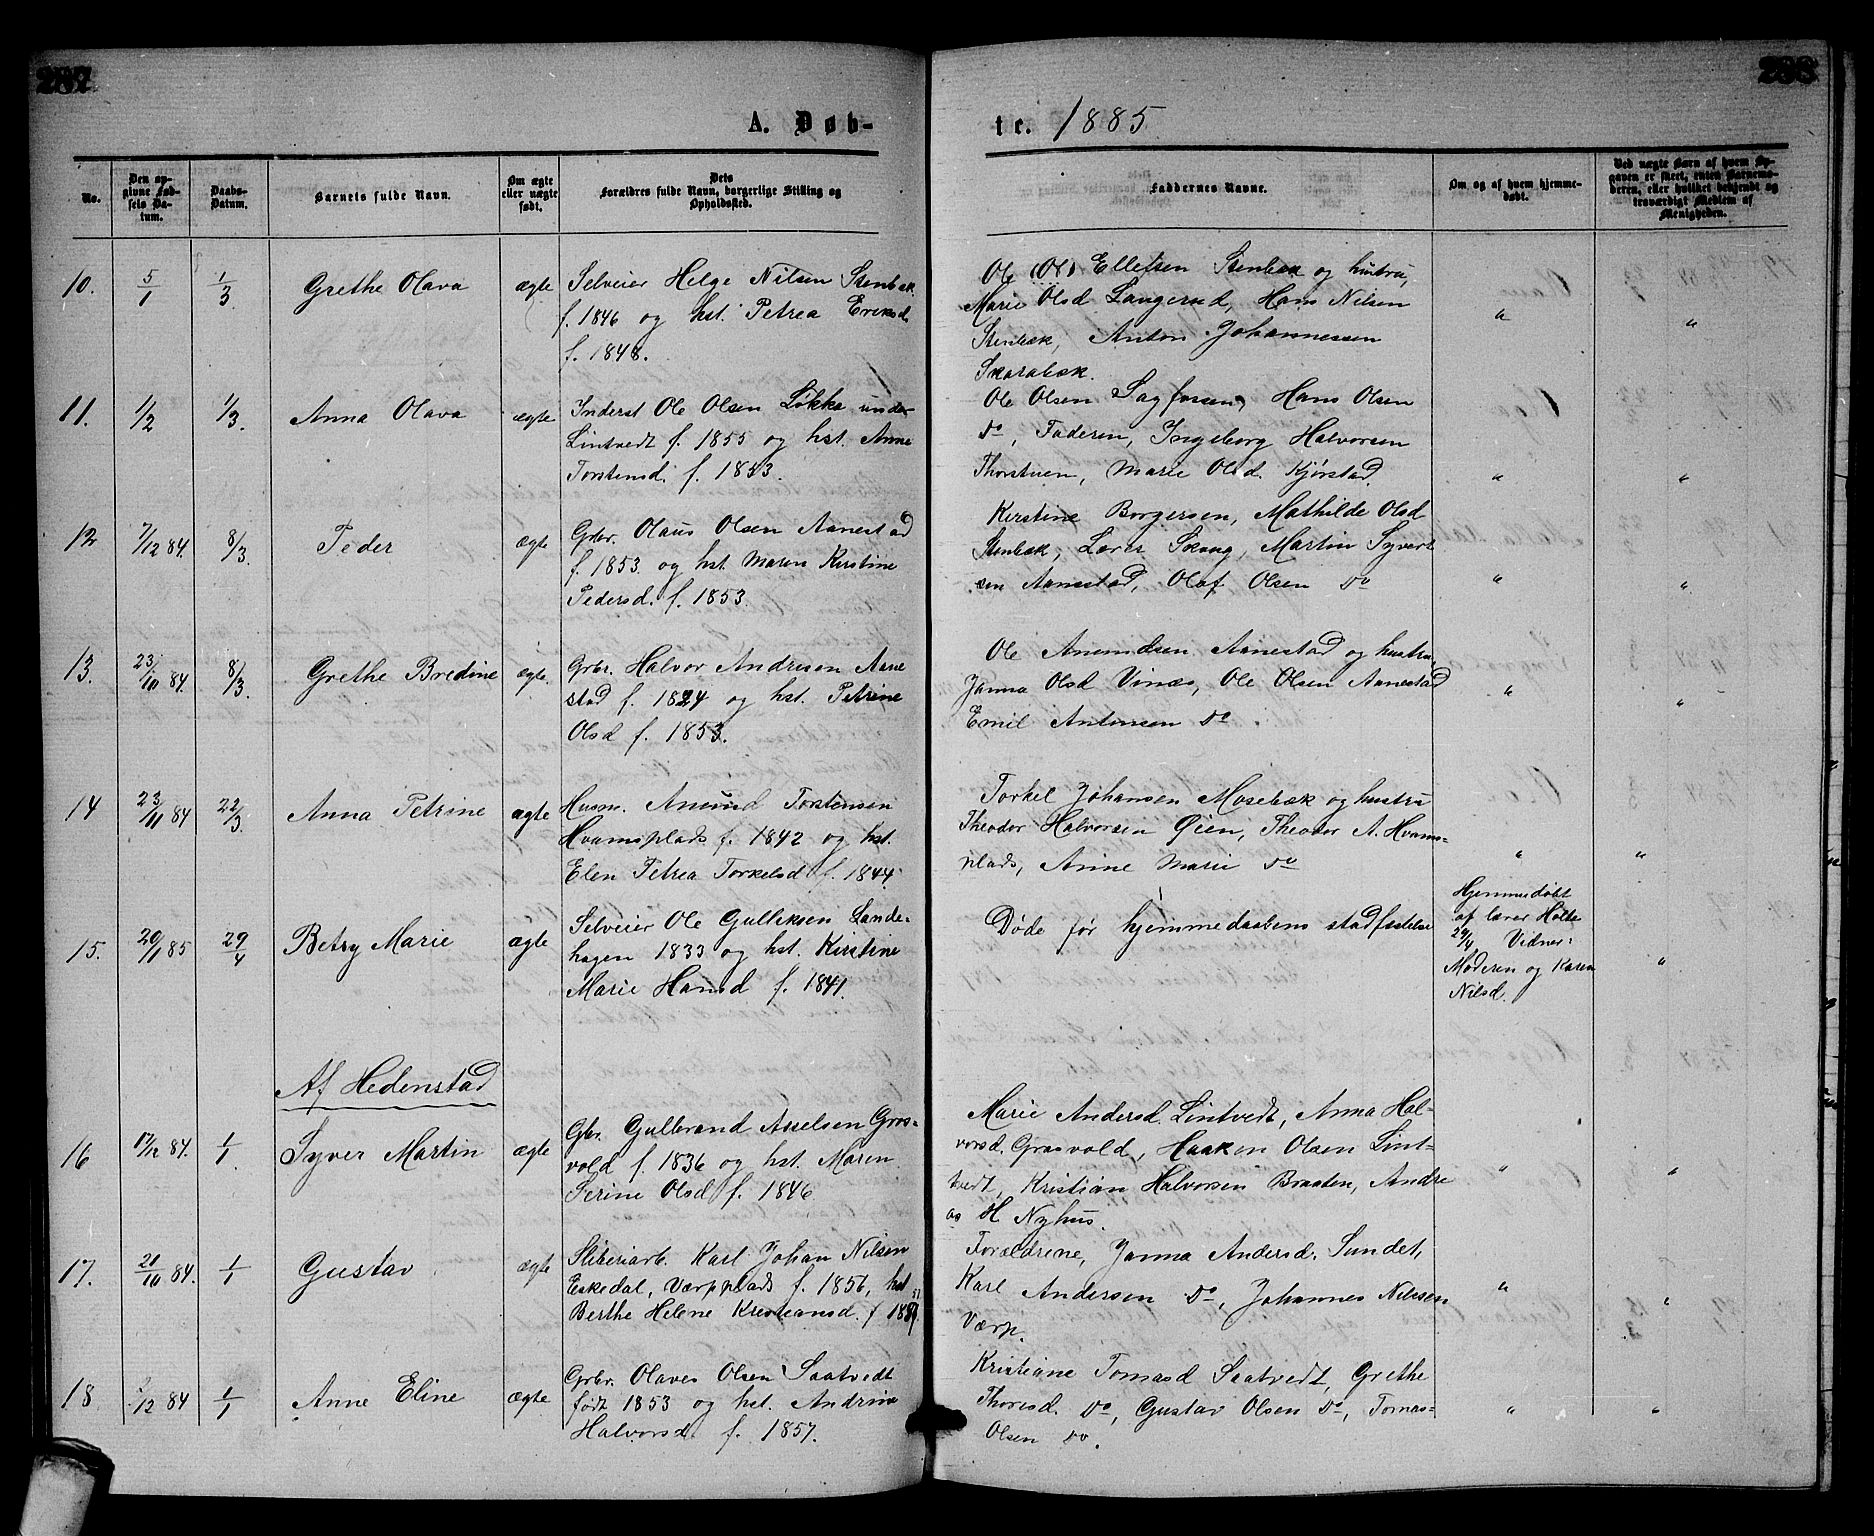 287
288
A. Døb-
te. 1885
No.
Den op-
givne Fød-
sels Da-
tum.
Daabs-
Datum.
Barnets fulde Navn.
Om ægte
eller uægte
født.
Dets
Forældres fulde Navn, borgerlige Stilling og
Opholdssted.
Faddernes Navne.
Om og af hvem hjemme-
døbt.
Ved uægte Børn af hvem Op-
gaven er skeet, enten Barnemo-
deren, eller hvilket bekjendt og
troværdigt Medlem af
Menigheden.
10. 5/1 1/3 Grethe Olava ægte
Selveier Helge Nilsen Stenbæk
f. 1846 og hst. Petrea Eriksd.
f. 1848.
Ole (Ol) Ellefsen Stenbæk og hustru,
Marie Olsd Langerud, Hans Nilsen
Stenbæk, Anton Johannessen
Skarabæk.
" "
11. 1/2 1/3. Anna Olava ægte
Inderst Ole Olsen Løkka under
Lintvedt f. 1855 og hst. Anne
Torstensd. f. 1853.
Ole Olsen Sagfossen, Hans Olsen
Do, Faderen, Ingeborg Halvorsen
Thorstuen, Marie Olsd. Kjørstad.
" "
12 7/12 84. 8/3. Peder ægte
Grbr. Olaus Olsen Aanestad
f. 1853. og hst. Maren Kirstine
Pedersd. f. 1853.
Kerstine Borgersen, Mathilde Olsd
Stenbæk, Lærer Skaug, Martin Syvert
sen Aanestad, Olaf Olsen Do
" "
13. 23/10 84. 8/3. Grethe Bredine ægte.
Grbr. Halvor Andresen Aane
stad f. 1824 og hst. Petrine
Olsd f. 1853.
Ole Anundsen Aanestad og hustru,
Janna Olsd Vinæs, Ole Olsen Aanestad
Emil Antonsen Do
" "
14 23/11 84 22/3. Anna Petrine ægte
Husm. Anund Torstensen
Hvamsplads f. 1842 og hst.
Elen Petrea Torkelsd f. 1844.
Torkel Johansen Mosebæk og hustru
Theodor Halvorsen Øien, Theodor A. Hvams-
plads, Anne Marie Do
" "
15. 20/1 85 29/4 Betsy Marie ægte
Selveier Ole Gulliksen Lande-
hagen 1833 og hst. Kirstine
Marie Hansd f. 1841.
Døde før hjemmedaabens stadfæstelse
Hjemmedøbt
af lærer Holte
29/4 Vidner:
Moderen og Karen
Nilsd.
"
Af Hedenstad
16 17/12 84. 1/1. Syver Martin ægte
Gbr. Gulbrand Asselsen Gros-
vold f. 1836 og hst. Maren
Serine Olsd f. 1846.
Marie Andersd. Lintvedt, Anna Hal-
vorsd. Grosvold, Haaken Olsen Lint-
tvedt, Kristian Halvorsen Braaten, Andre
as H Nyhus.
" "
17. 21/10 84. 1/1 Gustav ægte
Sliberiarb. Karl Johan Nilsen
Eskedal, Værpplads f. 1856, hst
Berthe Helene Kristiansd. f 1857
Forældrene, Janna Andersd. Sundet,
Karl Andersen Do, Johannes Nilssen
Værp.
" "
18 /12 84 1/1 Anne Eline ægte
Grbr. Olaves Olsen Saatvedt
født 1853 og hst. Andrine
Halvorsd. f. 1857.
Kristiane Tomasd Saatvedt, Grethe
Thoresd. Do, Gustav Olsen Do, Tomas-
Olsen Do.
" "